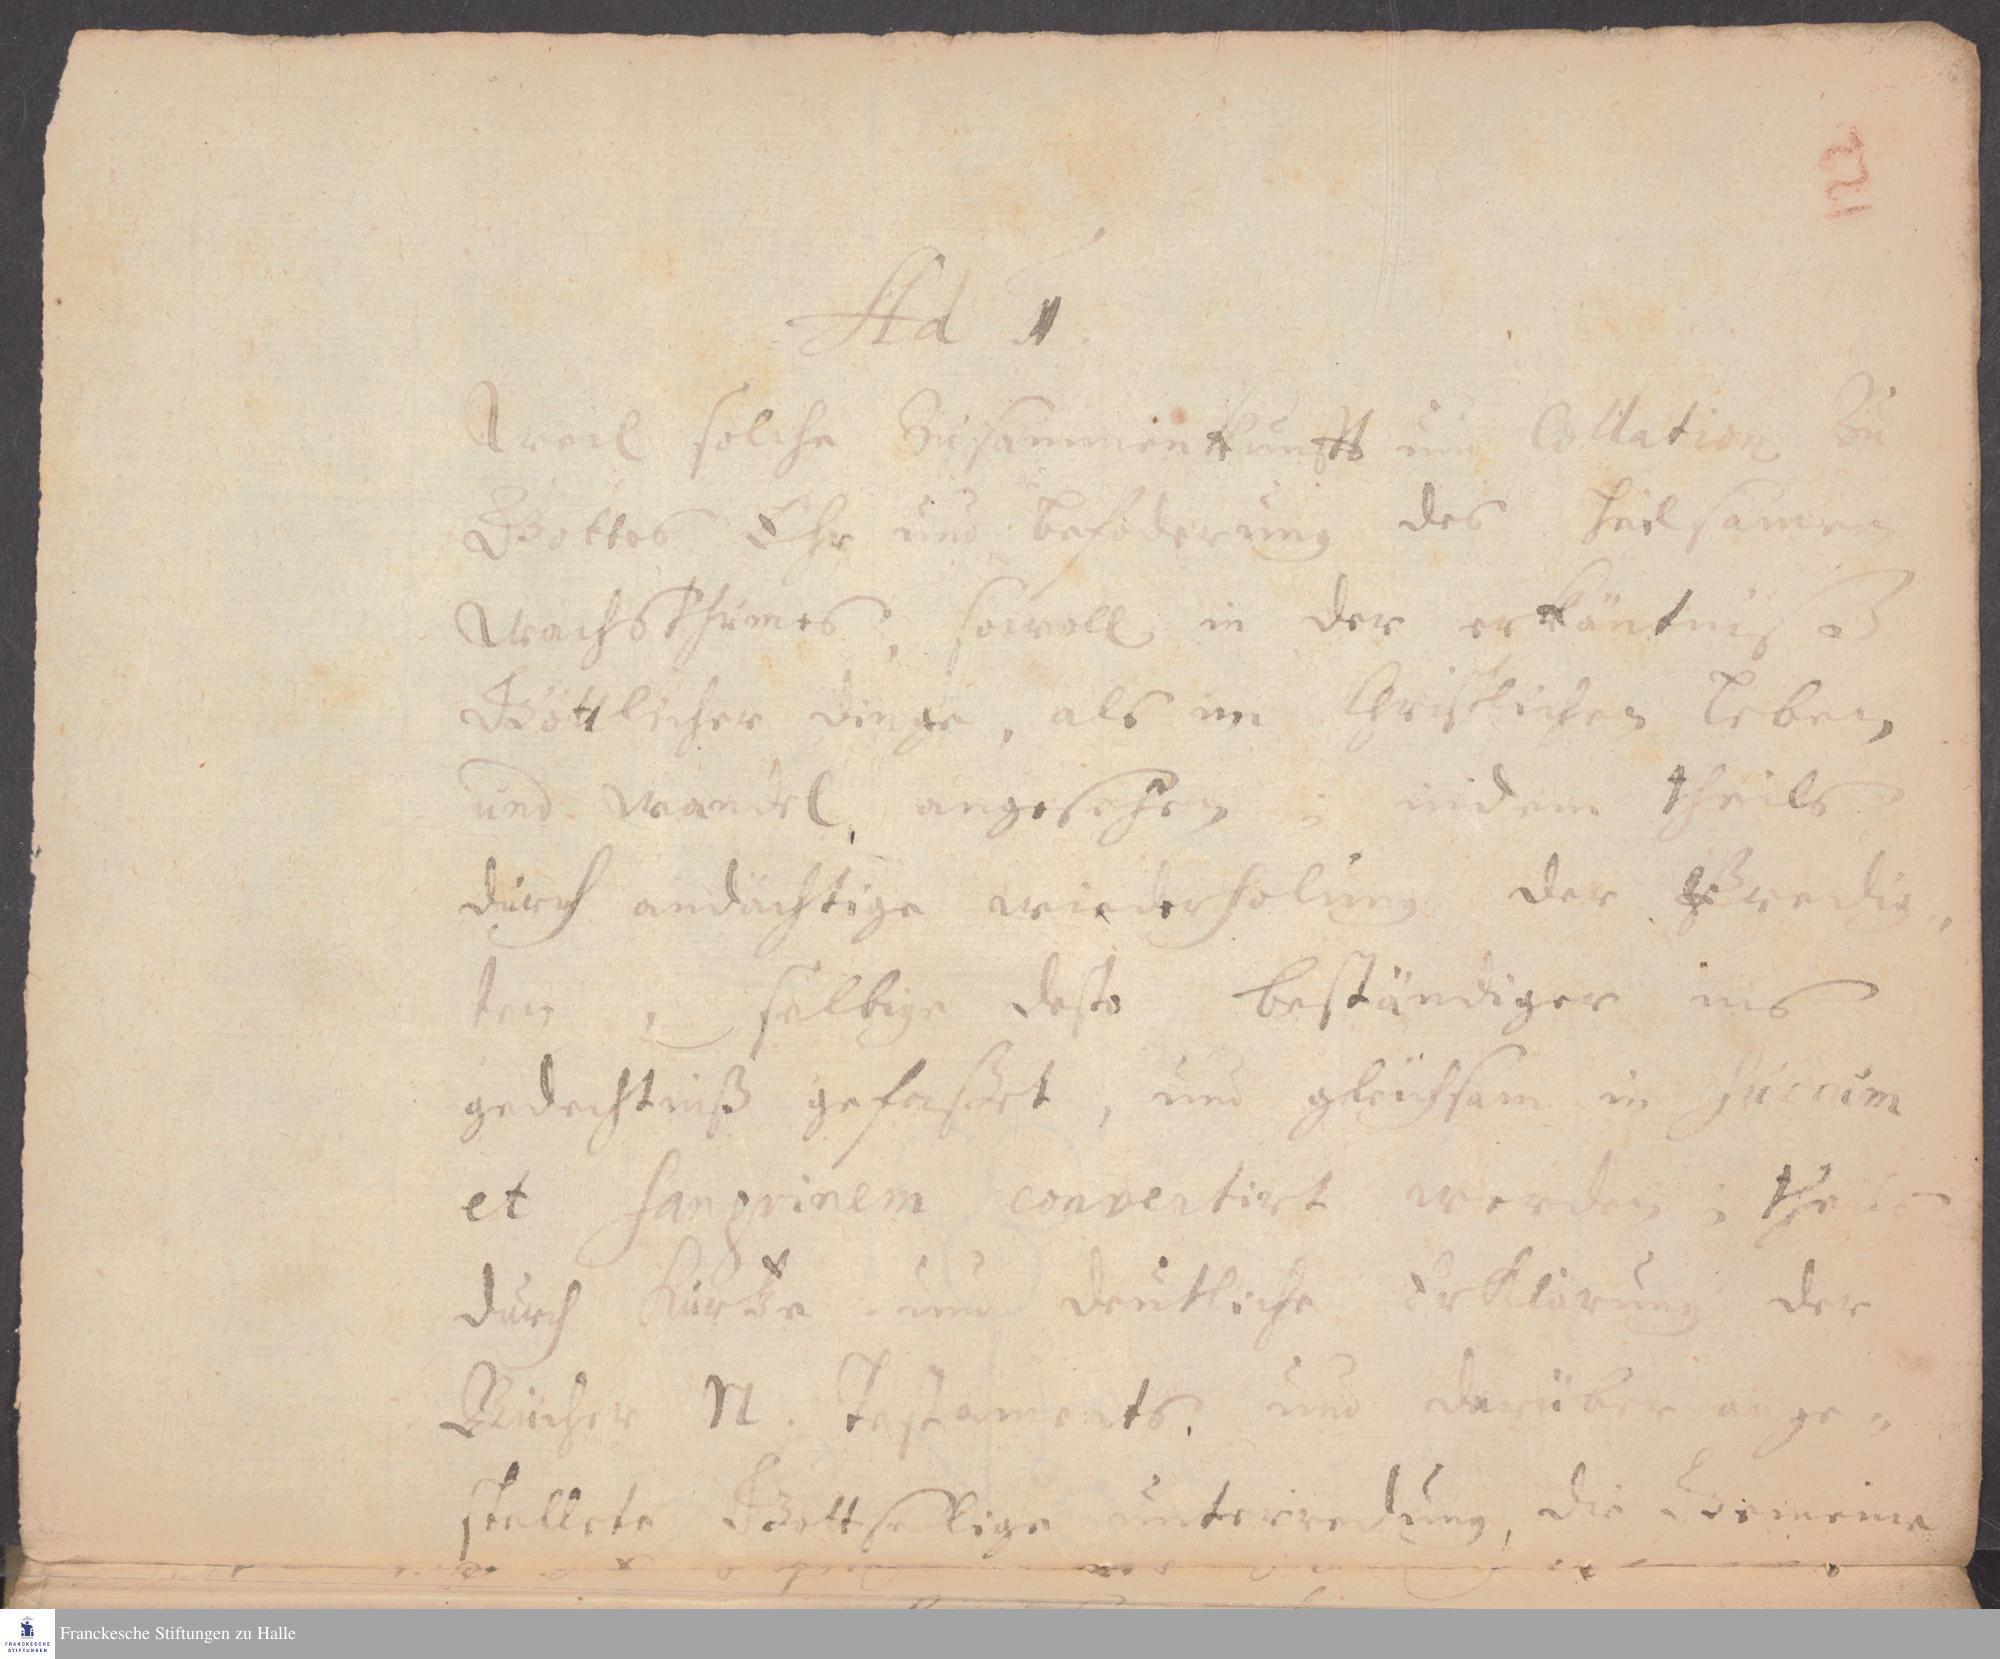 Ad 1.
Weil solche Zusammenkunfft und Collation zu
Gottes Ehr und beföderung des heilsamen
wachsthumes, sowoll in der erkäntnis
Göttlicher dinge, als im Christlichen Leben,
und wandel, angesehen; indem theils
durch andächtige wiederholung der Predig„
ten, selbige desto beständiger ins
gedechtniß gefasset, und gleichsam in succum
et sangvinem convertirt werden; theils
durch kurtze und deutliche Erklärung der
Bücher N. Testaments, und darüber ange„
stellete Gottselige unterredung, die Gemeine
Franckesche Stiftungen zu Halle
FRANCKESCHE
STIFTUNGEN